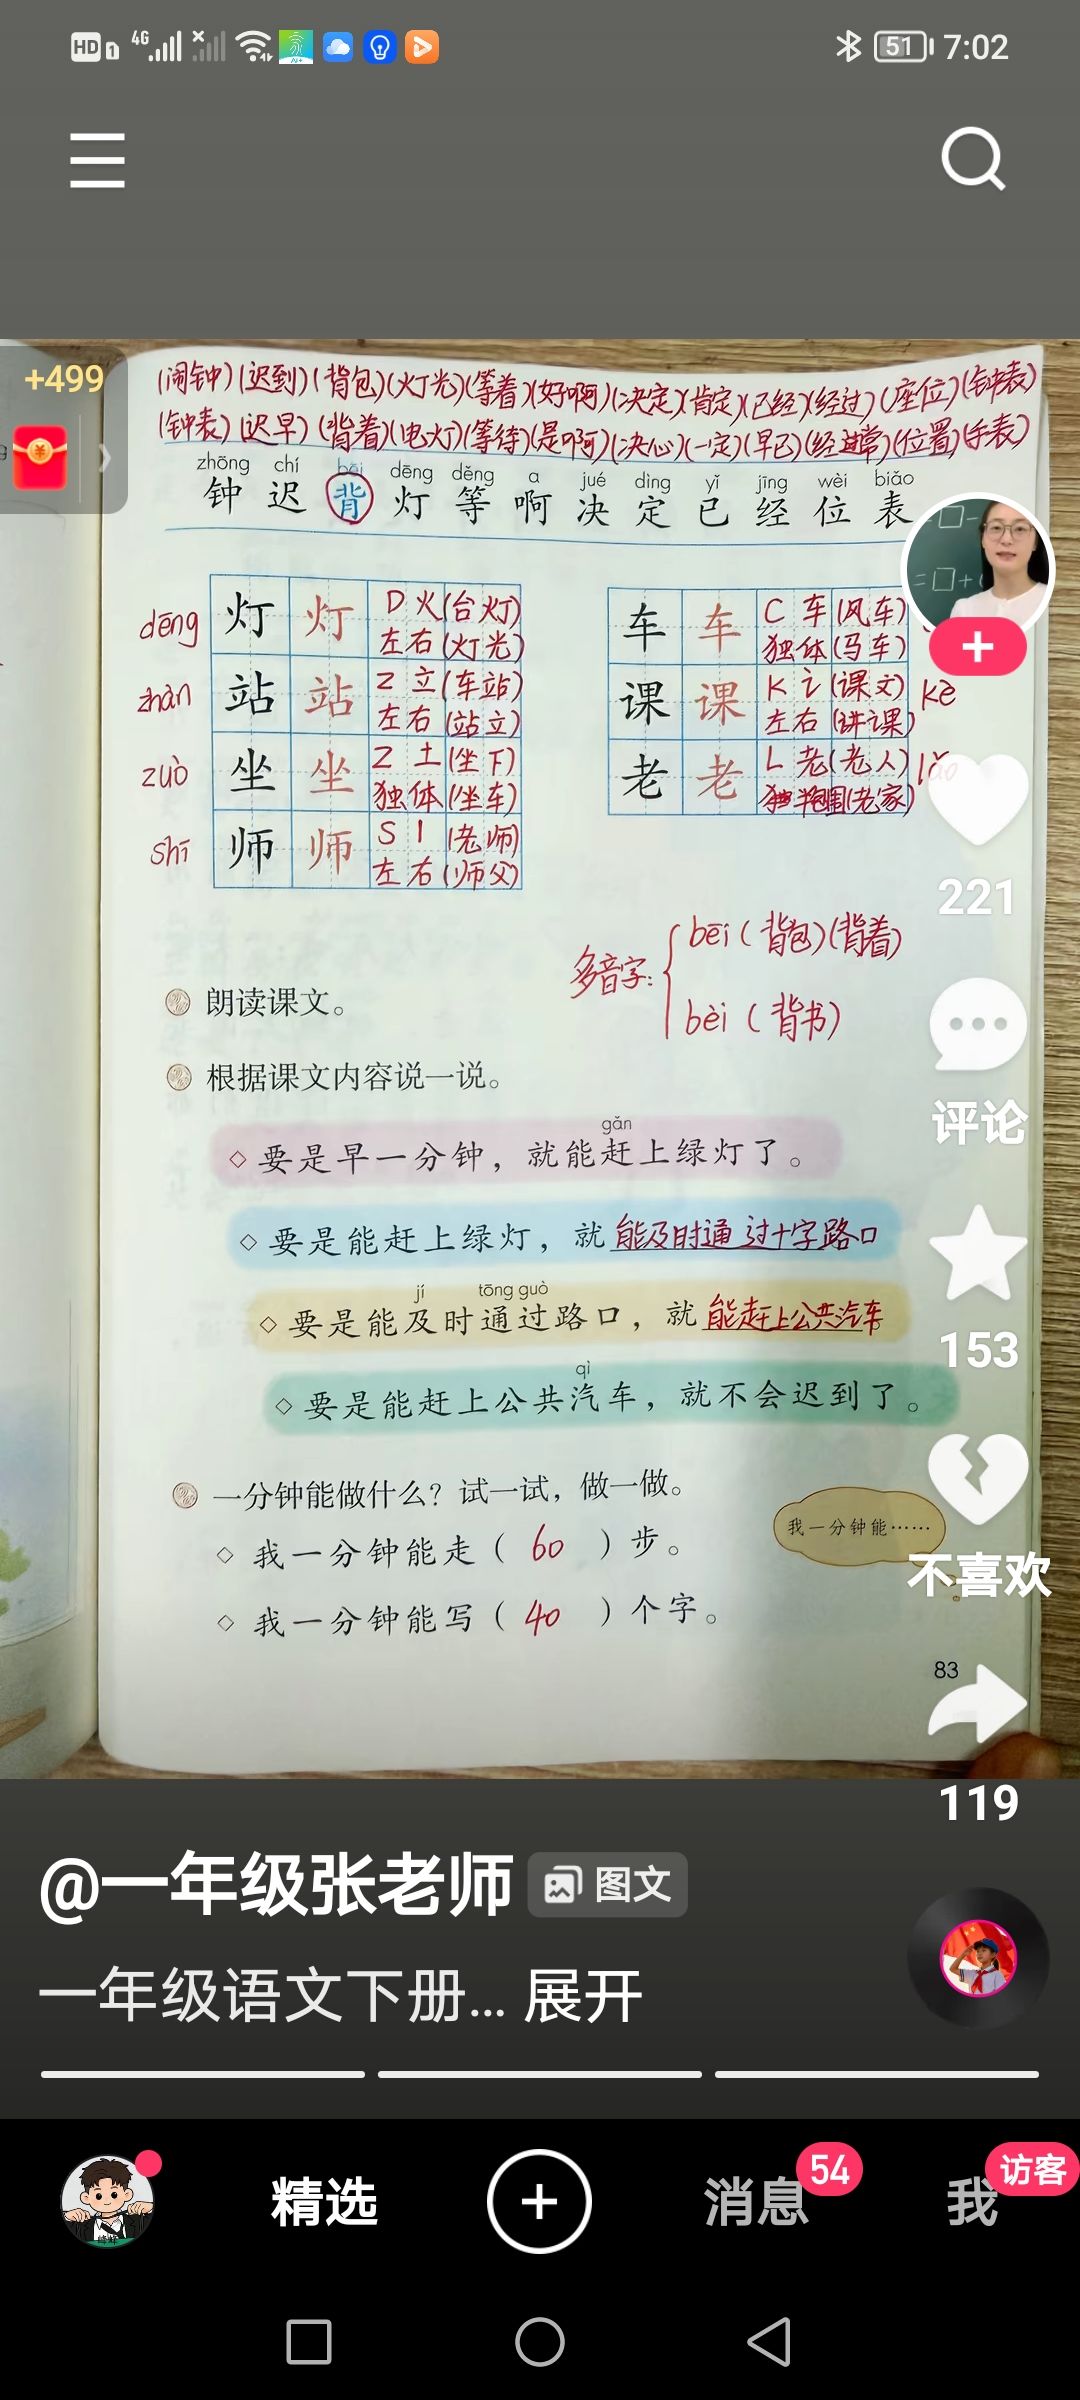 HD 1 4G 51 7:02
+499
(闹钟)(迟到)(背包)(灯光)(等着)(好啊)(决定)(肯定)(已经)(经过)(座位)(钟表)
(钟表)(迟早)(背着)(电灯)(等待)(是啊)(决心)(一定)(早已)(经常)(位置)(手表)
zhōng chí bēi dēng děng a jué dìng yǐ jīng wèi biǎo
钟 迟 背 灯 等 啊 决 定 已 经 位 表
dēng 灯 灯 D 火(台灯)
左右(灯光)
zhàn 站 站 Z 立(车站)
左右(站立)
zuò 坐 坐 Z 土(坐下)
独体(坐车)
shī 师 师 S 丨(老师)
左右(师父)
车 车 C 车(风车)
独体(马车)
课 课 K 讠(课文) kè
左右(讲课)
老 老 L 老(老人) lǎo
半包围(老家)
多音字:
bēi(背包)(背着)
bèi(背书)
朗读课文。
根据课文内容说一说。
gǎn
◇要是早一分钟，就能赶上绿灯了。
◇要是能赶上绿灯，就能及时通过十字路口
jí tōng guò
◇要是能及时通过路口，就能赶上公共汽车
qì
◇要是能赶上公共汽车，就不会迟到了。
一分钟能做什么？试一试，做一做。
我一分钟能……
◇我一分钟能走(60)步。
◇我一分钟能写(40)个字。
83
221
评论
153
不喜欢
119
@一年级张老师 图文
一年级语文下册... 展开
精选 消息 54 我 访客